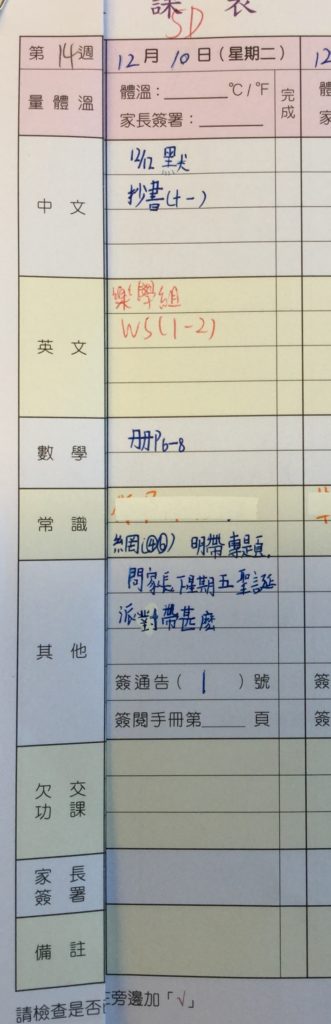 課 表
5D
第 14 週 12月 10 日 (星期二)
量體溫 體溫：______ ℃/℉ 完成
家長簽署：______
中 文 12/12 默
抄書(十一)
英 文 樂學組
WS(1-2)
數 學 冊P6-8
常 識
網 明帶專題
其 他 問家長下星期五聖誕
派對帶甚麼
簽通告( 1 )號
簽閱手冊第____頁
欠 交
功 課
家 長
簽 署
備 註
請檢查是否
旁邊加「√」